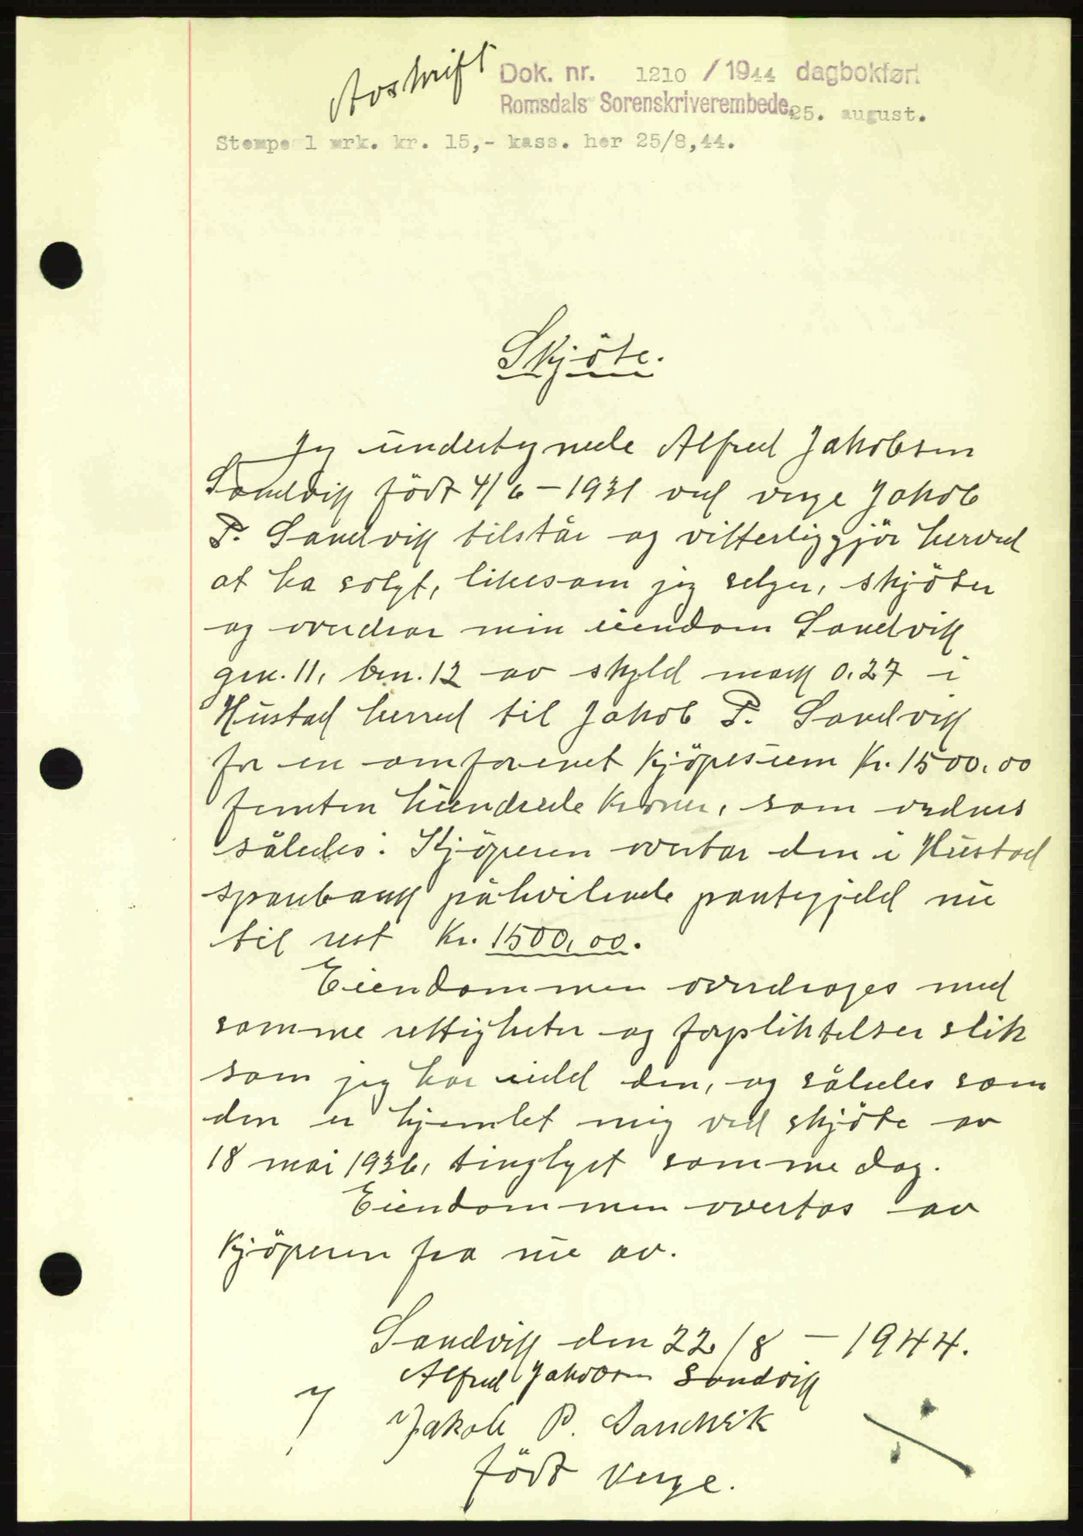 Avskrift
Dok. nr. 1210 / 1944 dagbokført
Romsdals Sorenskriverembede, 25. august.
Stempel mrk. kr. 15,- kass. her 25/8,44.
Skjöte.
Jeg undertegnede Alfred Jakobsen
Sandvik födt 4/6 - 1931 ved verge Jakob
P. Sandvik tilstår og vitterliggjör herved
at ha solgt, likesom jeg selger, skjöter
og overdrar min eiendom Sandvik
gnr. 11, bnr. 12 av skyld mark 0.27 i
Hustad herred til Jakob P. Sandvik
for en omforenet kjöpesum Kr. 1500.00
femten hundrede kroner, som ordnes
således: Kjöperen overtar den i Hustad
sparebank påhvilende pantegjeld nu
til rest Kr. 1500,00.
Eiendommen overdrages med
samme rettigheter og forpliktelser slik
som jeg har eiet den, og således som
den er hjemlet mig ved skjöte av
18 mai 1936, tinglyst samme dag.
Eiendommen overtas av
kjöperen fra nu av.
Sandvik den 22/8 - 1944.
Alfred Jakobsen Sandvik
Jakob P. Sandvik
födt Verge.